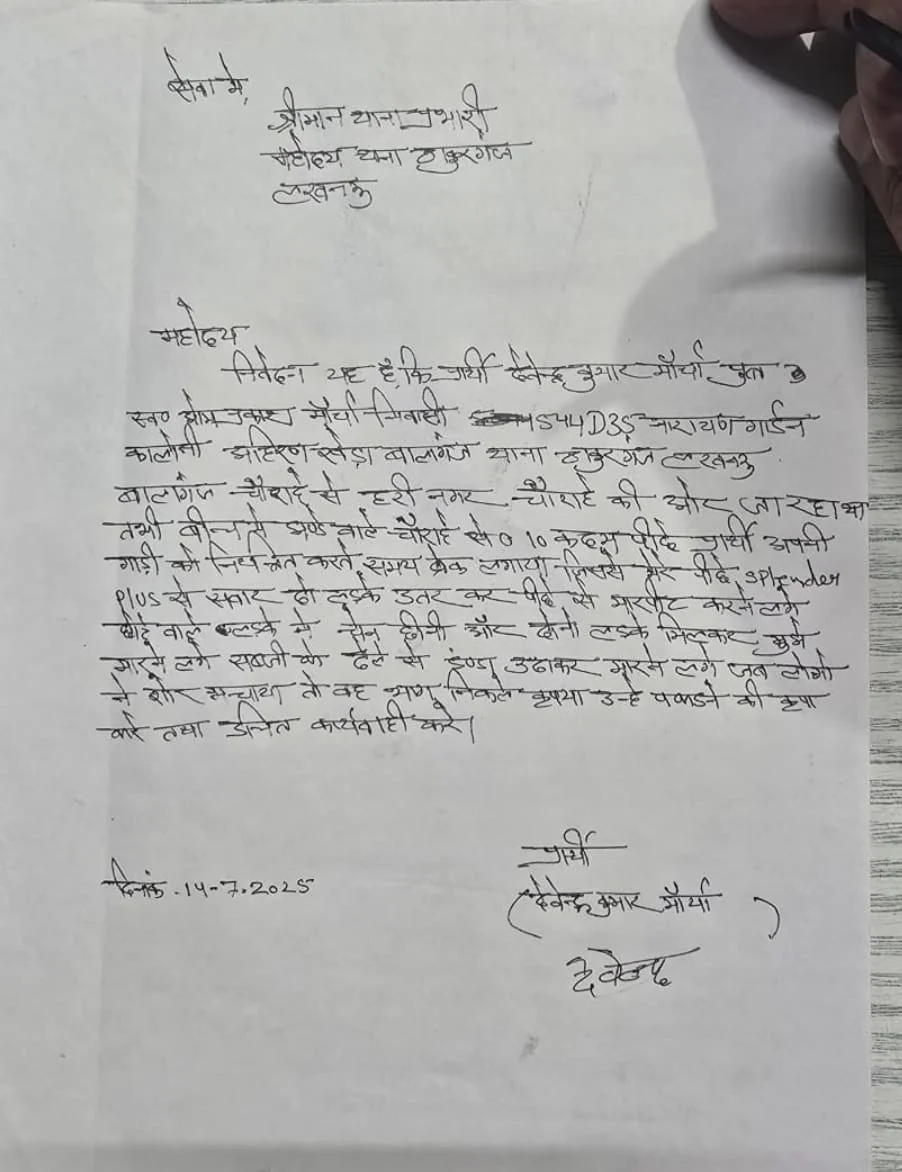 सेवा मे,
श्रीमान थाना प्रभारी
महोदय थाना ठाकुरगंज
लखनऊ
महोदय
निवेदन यह है कि प्रार्थी देवेन्द्र कुमार मौर्या पुत्र
स्व० ओम प्रकाश मौर्या निवासी 544D35 नारायण गार्डन
कालोनी अहिरण खेड़ा बालागंज थाना ठाकुरगंज लखनऊ
बालागंज चौराहे से हरी नगर चौराहे की ओर जा रहा था
तभी बीच से अण्डे वाले चौराहे से 10 कदम पीछे प्रार्थी अपनी
गाड़ी को करते समय ब्रेक लगाया जिससे मेरे पीछे splender
plus से सवार दो लड़के उतर कर पीछे से मारपीट करने लगे
छोटे वाले लड़के ने चेन छीनी और दोनो लड़के मिलकर मुझे
मारने लगे सब्जी के ठेले से डण्डा उठाकर मारने लगे जब लोगो
ने शोर मचाया तो वह भाग निकले कृपया उन्हे पकडने की कृपा
करे तथा उचित कार्यवाही करे।
प्रार्थी
दिनांक .14-7.2025
(देवेन्द्र कुमार मौर्या )
देवेन्द्र